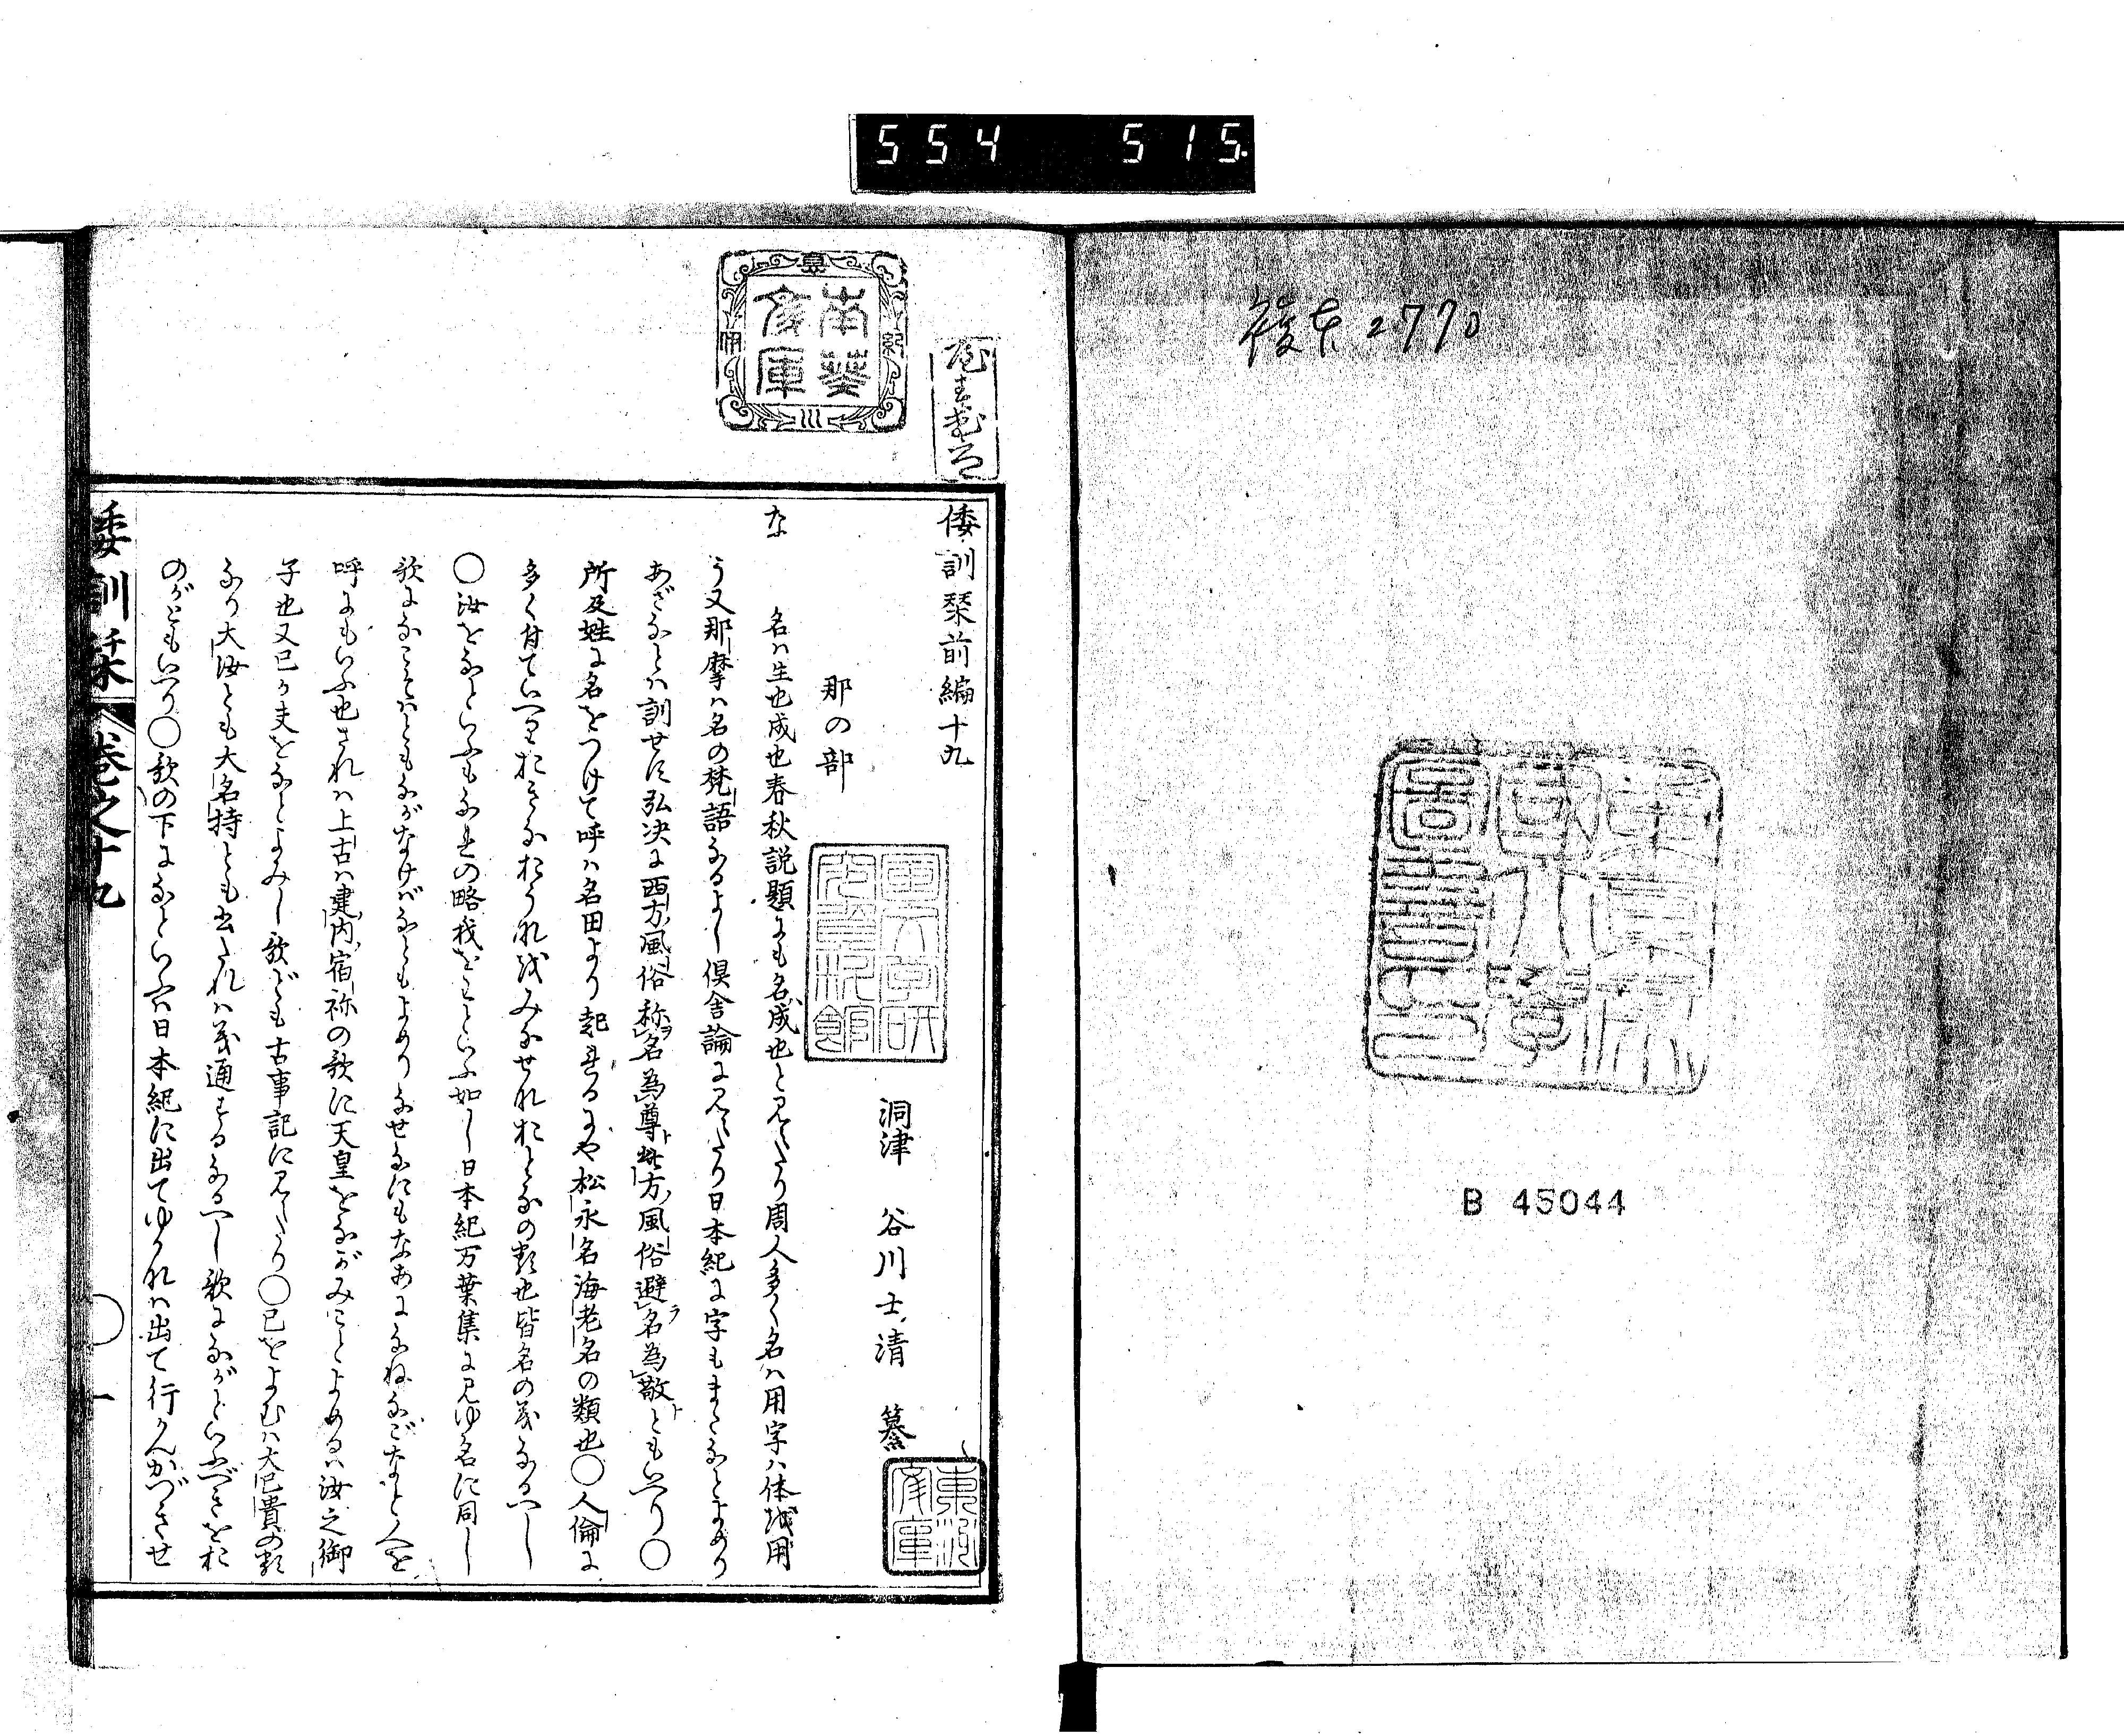 554 515.
複本2770
B 45044
南葵文庫
倭訓栞前編十九
洞津 谷川士清 纂
那の部
な 名ハ生也成也春秋説題にも名成也と見えたり周人多く名ハ用字ハ体を用
う又那摩ハ名の梵語なるよし倶舎論に見えたり日本紀に字もまたなとよめり
あざなとハ訓せす弘决に西方風俗称名為尊此方風俗避名為敬ともいへり〇
所及姓に名をつけて呼ハ名田より起れるにや松永名海老名の類也〇人倫に
多く付ていへりおきなおうなをみなせなおとなの類也皆名の義なるへし
〇汝をなといふもなれの略我をわといふ如し日本紀万葉集に見ゆ名に同し
歌になこそハともながなけばなともよめりなせなにもなあになねなごなと人を
呼にもいふ也されハ上古ハ建内宿祢の歌に天皇をながみことよめるハ汝之御
子也又己か夫をなとよみし歌ども古事記に見えたり〇己をよむハ大己貴の類
なり大汝とも大名持とも書たれハ義通するなるへし歌にながといふべきをお
のがともいへり〇歌の下になといふハ日本紀に出てゆかなハ出て行かんかづきせ
倭訓栞 巻之十九 〇一